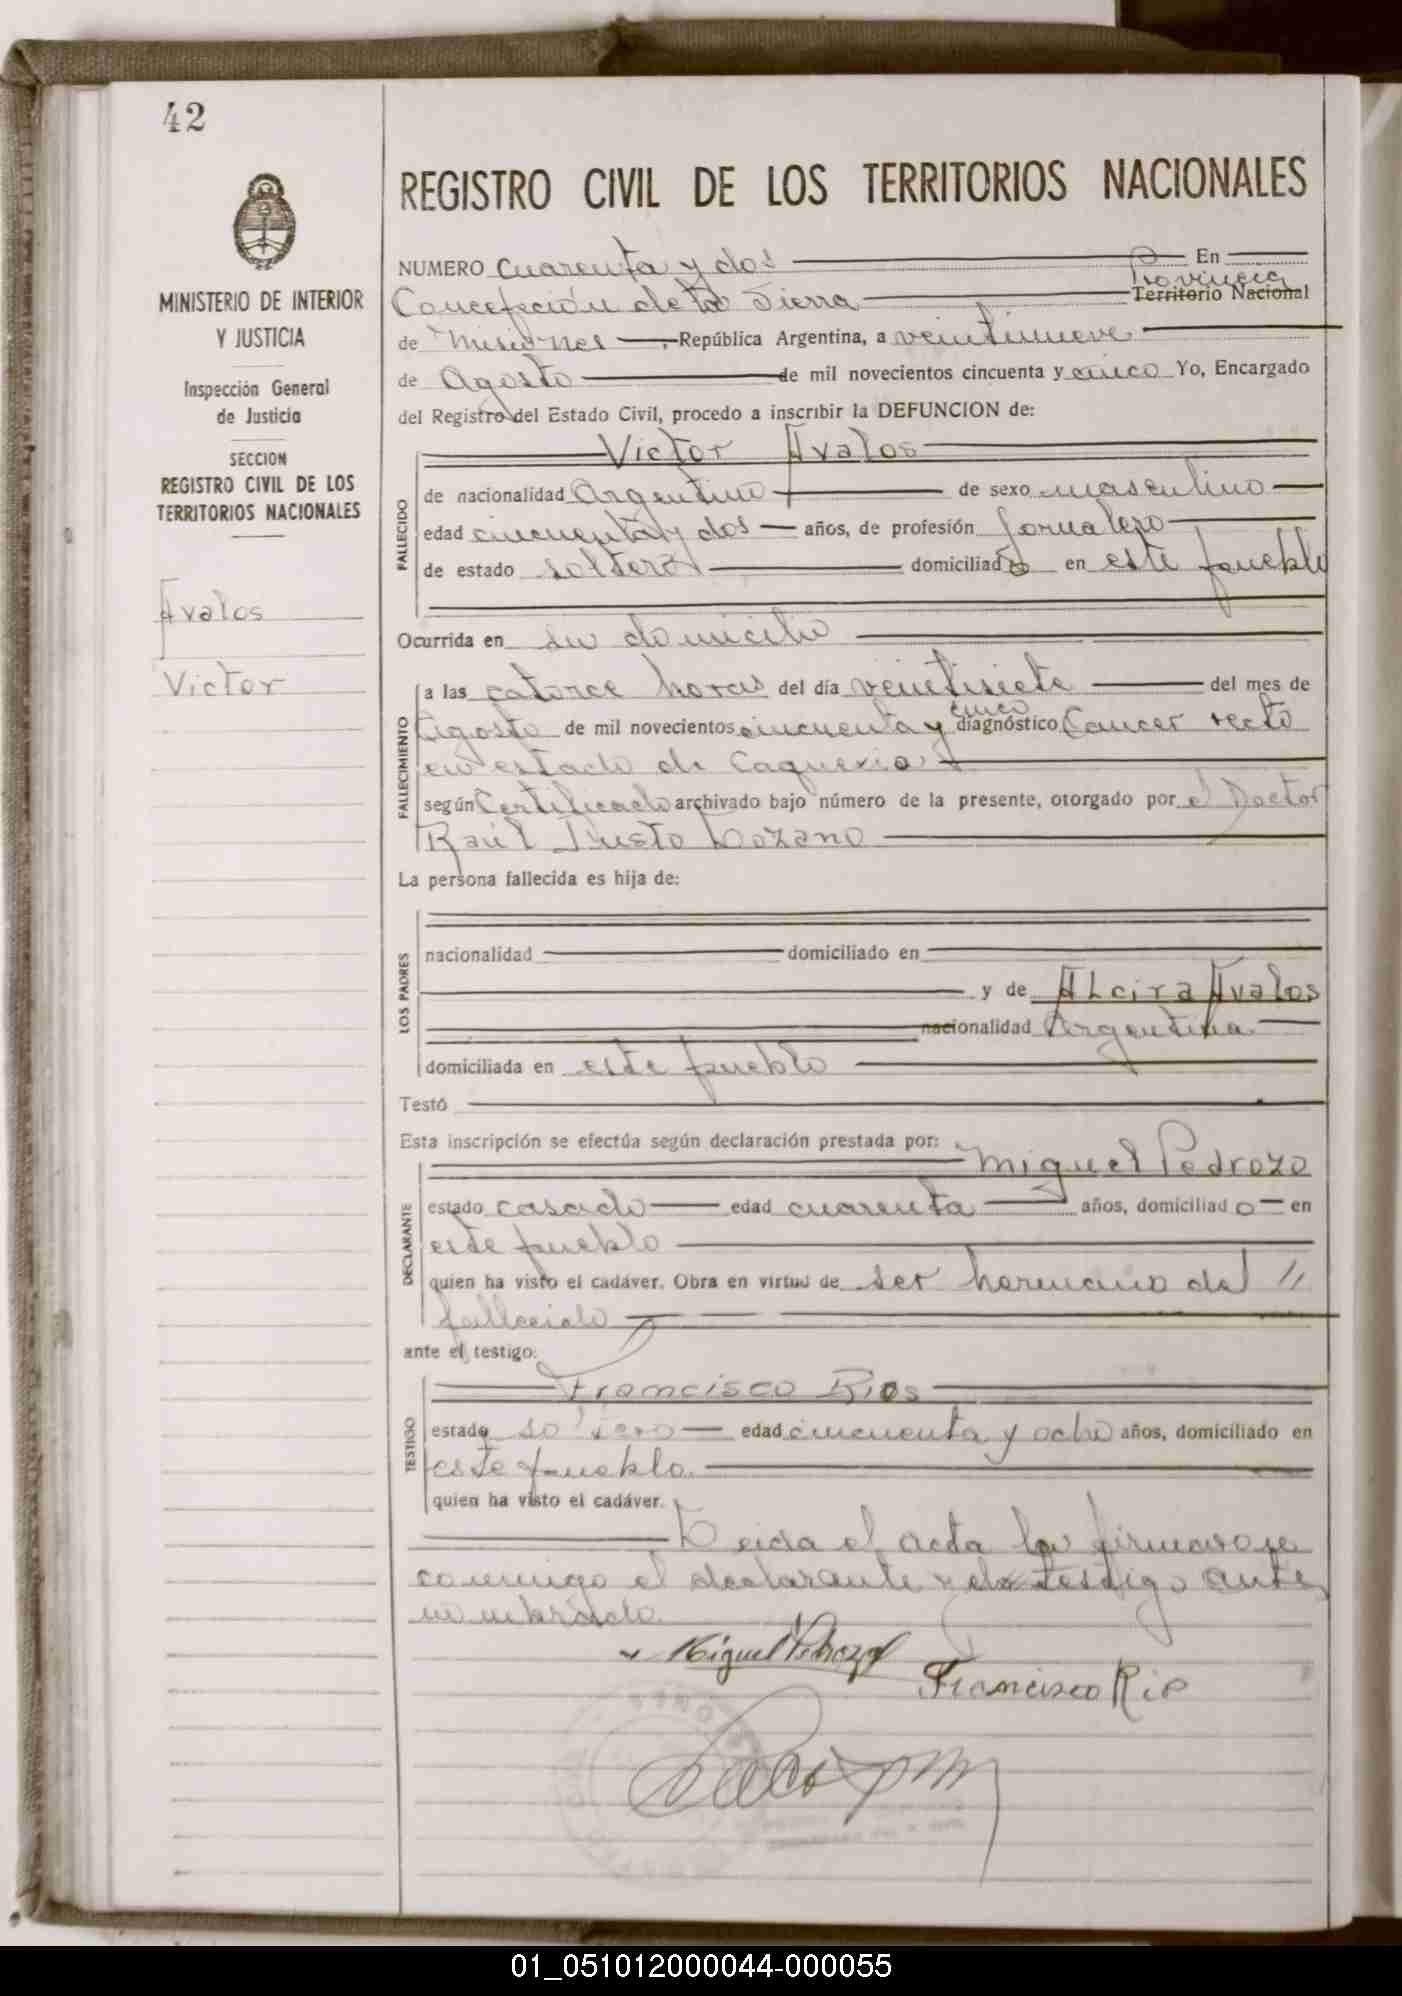 42
MINISTERIO DE INTERIOR
Y JUSTICIA
Inspección General
de Justicia
SECCION
REGISTRO CIVIL DE LOS
TERRITORIOS NACIONALES
Avalos
Victor
REGISTRO CIVIL DE LOS TERRITORIOS NACIONALES
NUMERO cuarenta y dos En
Provincia
Concepción de la Sierra Territorio Nacional
de Misiones República Argentina, a veintinueve
de Agosto de mil novecientos cincuenta y cinco Yo, Encargado
del Registro del Estado Civil, procedo a inscribir la DEFUNCION de:
Victor Avalos
FALLECIDO
de nacionalidad Argentino de sexo masculino
edad cincuenta y dos años, de profesión Jornalero
de estado soltero domiciliado en este pueblo
Ocurrida en su domicilio
FALLECIMIENTO
a las catorce horas del día veintisiete del mes de
cinco
Agosto de mil novecientos cincuenta y diagnóstico Cancer recto
en estado de Caquexia
según Certificado archivado bajo número de la presente, otorgado por el Doctor
Raúl Justo Lozano
La persona fallecida es hija de:
LOS PADRES
nacionalidad domiciliado en
y de Alcira Avalos
nacionalidad Argentina
domiciliada en este pueblo
Testó
Esta inscripción se efectúa según declaración prestada por:
Miguel Pedrozo
DECLARANTE
estado casado edad cuarenta años, domiciliado en
este pueblo
quien ha visto el cadáver. Obra en virtud de ser hermano del //
fallecido
ante el testigo:
Francisco Rios
TESTIGO
estado soltero edad cincuenta y ocho años, domiciliado en
este pueblo
quien ha visto el cadáver.
Leida el acta la firmaron
conmigo el declarante y el testigo antes
nombrado
Miguel Pedrozo
Francisco Rio
01_051012000044-000055